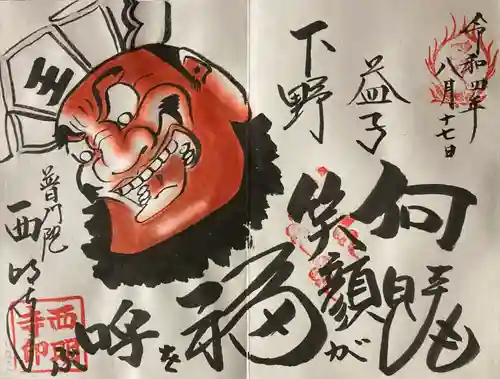 令和四年
八月十七日
下野
益子
何見ても
笑顔が
福を
呼ぶ
王
普門院
西明寺
西明
寺印